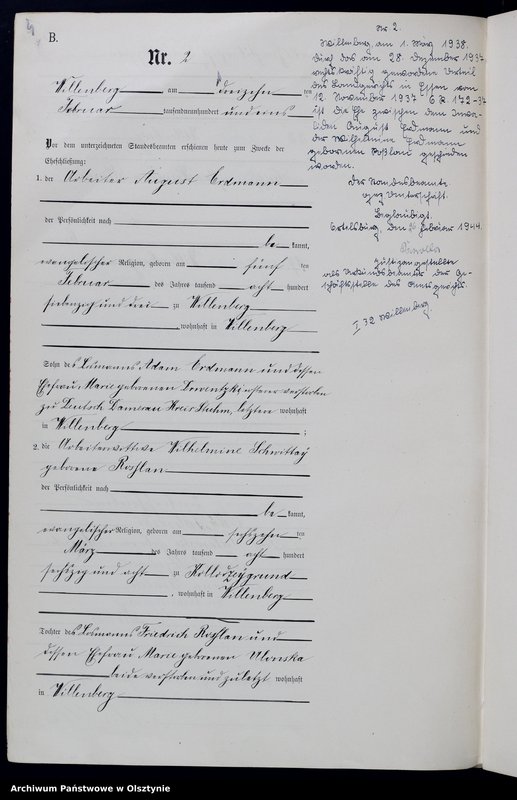 B.
Nr. 2
Willenberg am dreizehn ten
Februar tausendneunhundert und eins
Vor dem unterzeichneten Standesbeamten erschienen heute zum Zwecke der
Eheschließung:
1. der Arbeiter August Erdmann
der Persönlichkeit nach
be kannt,
evangelischer Religion, geboren am fünf ten
Februar des Jahres tausend acht hundert
siebenzig und drei zu Willenberg
, wohnhaft in Willenberg
Sohn des Losmanns Adam Erdmann und dessen
Ehefrau Marie geborenen letzterer verstorben
zu Deutsch Damerau Kreis Stuhm, letzten wohnhaft
in Willenberg ;
2. die Arbeiterwittwe Wilhelmine Schwittay
geborene Roßlan
der Persönlichkeit nach
be kannt,
evangelischer Religion, geboren am sechszehn ten
März des Jahres tausend acht hundert
sechszig und acht zu
, wohnhaft in Willenberg
Tochter des Losmanns Friedrich Roßlan und
dessen Ehefrau Marie geborenen Ulonska
beide verstorben und zuletzt wohnhaft
in Willenberg
Nr 2.
Willenberg, am 1. März 1938.
Durch das am 28. Dezember 1937
rechtskräftig gewordene Urteil
des Landgerichts in Essen vom
12. November 1937 6 R 172-37
ist die Ehe zwischen dem Inva-
liden August Erdmann und
der Wilhelmine Erdmann
geborenen Roßlan geschieden
worden.
Der Standesbeamte.
gez. Unterschrift.
Beglaubigt.
Ortelsburg, den Februar 1944.
Justizangestellte
als Urkundsbeamter der Ge-
schäftsstelle des Amtsgerichts.
I 32 Willenberg.
Archiwum Państwowe w Olsztynie